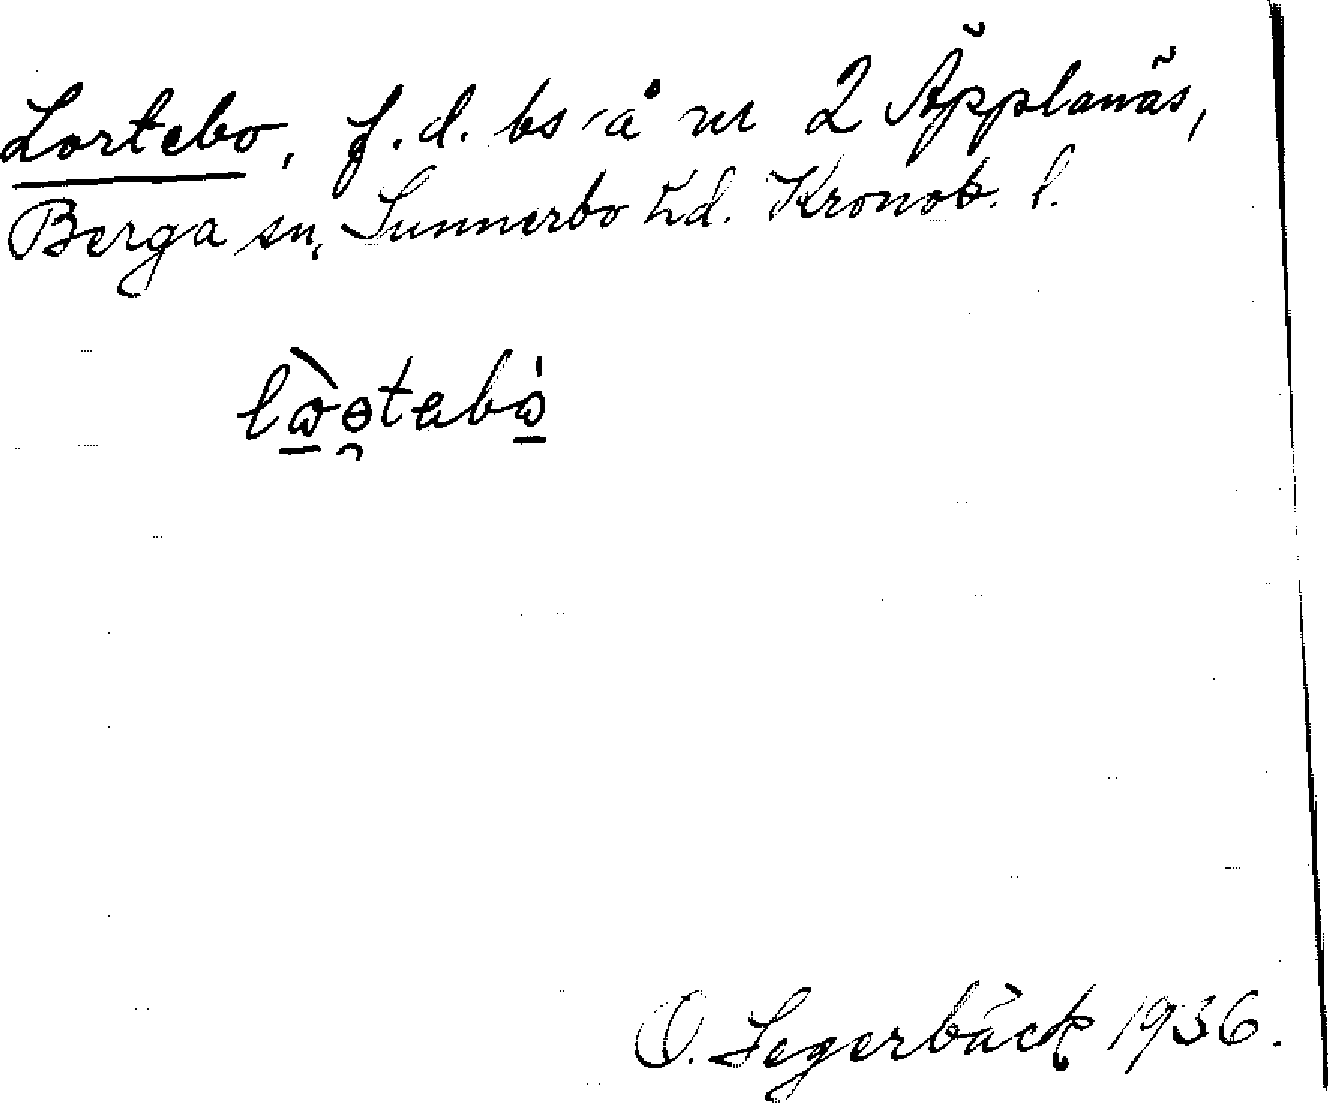 Lortebo, f.d. bs å nr 2 Äpplanäs,
Berga sn, Sunnerbo hd. Kronob. l.
O. Segerbäck 1936.